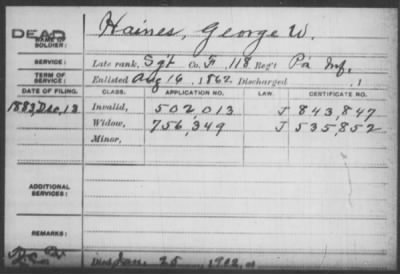 DEAD
NAME OF SOLDIER: Haines, George W.
SERVICE: Late rank, Sgt Co. F, 118 Reg't Pa Inf.
TERM OF SERVICE: Enlisted Aug 16, 1862 Discharged , 1
DATE OF FILING. CLASS. APPLICATION NO. LAW. CERTIFICATE NO.
1883, Dec, 13 Invalid, 502,013 J 843,847
Widow, 756,349 J 535,852
Minor,
ADDITIONAL SERVICES:
REMARKS:
Died Jan. 25, 1902,